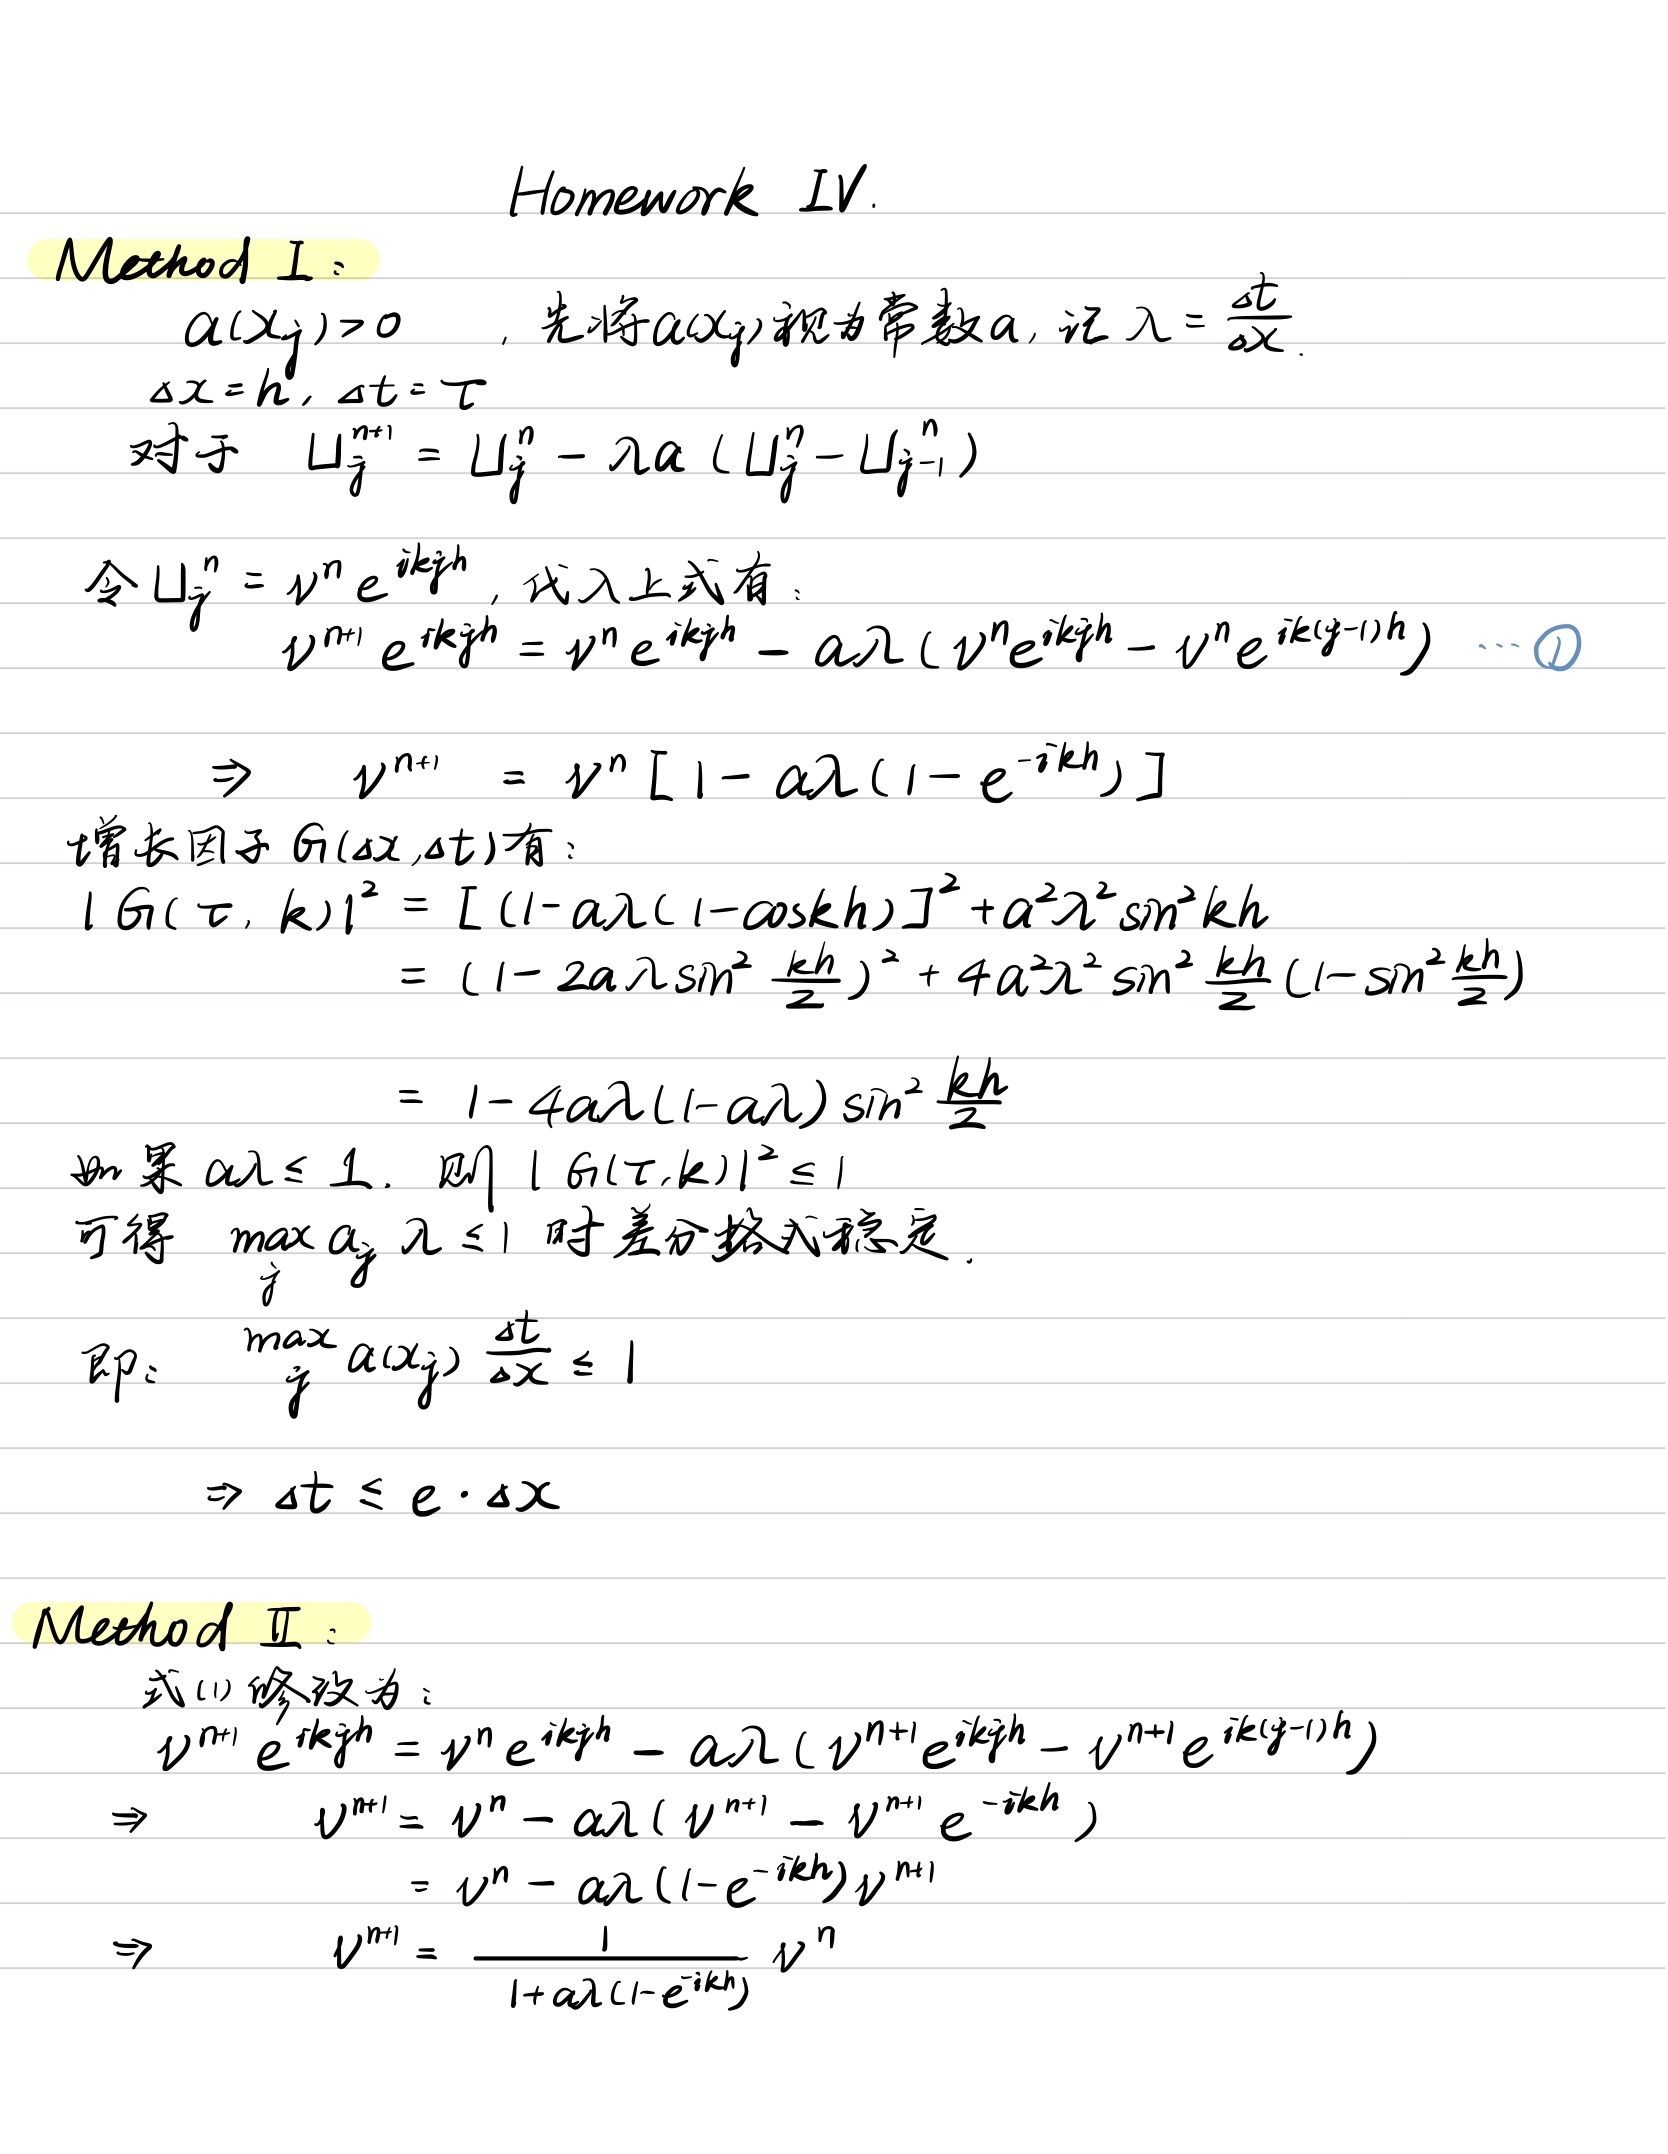 Homework IV.
Method I:
a(x_j)>0 , 先将a(x_j)视为常数a, 记 λ = Δt/Δx.
Δx=h, Δt=τ
对于 U_j^{n+1} = U_j^n - λa (U_j^n - U_{j-1}^n)
令 U_j^n = v^n e^{ikjh}, 代入上式有:
v^{n+1} e^{ikjh} = v^n e^{ikjh} - aλ(v^n e^{ikjh} - v^n e^{ik(j-1)h}) ...①
⇒ v^{n+1} = v^n [1 - aλ(1 - e^{-ikh})]
增长因子 G(Δx,Δt)有:
|G(τ, k)|^2 = [(1-aλ(1-coskh)]^2 + a^2λ^2 sin^2 kh
= (1-2aλ sin^2 kh/2)^2 + 4a^2λ^2 sin^2 kh/2 (1-sin^2 kh/2)
= 1-4aλ(1-aλ) sin^2 kh/2
如果 aλ ≤ 1. 则 |G(τ,k)|^2 ≤ 1
可得 max_j a_j λ ≤ 1 时差分格式稳定.
即: max_j a(x_j) Δt/Δx ≤ 1
⇒ Δt ≤ e · Δx
Method II:
式(1)修改为:
v^{n+1} e^{ikjh} = v^n e^{ikjh} - aλ(v^{n+1} e^{ikjh} - v^{n+1} e^{ik(j-1)h})
⇒ v^{n+1} = v^n - aλ(v^{n+1} - v^{n+1} e^{-ikh})
= v^n - aλ(1-e^{-ikh})v^{n+1}
⇒ v^{n+1} = 1/(1+aλ(1-e^{-ikh})) v^n